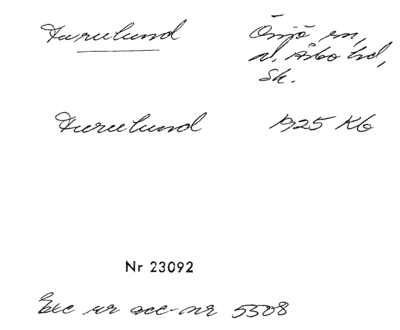 Furulund Önnö sn,
N. Åsbo hd,
Sk.
Furulund 1925 Kb
Nr 23092
Exc ur acc-nr 5508